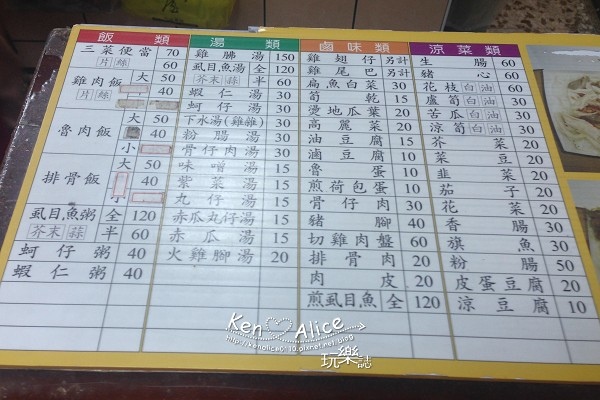 飯類
三菜便當 70
片 絲 60
雞肉飯 大 50
片 絲 40
魯肉飯 大 50
40
小
排骨飯 大 50
40
小
虱目魚粥 全 120
芥末 蒜 半 60
蚵仔粥 40
蝦仁粥 40
湯類
雞腸湯 150
虱目魚湯 全 120
芥末 蒜 半 60
蝦仁湯 30
蚵仔湯 30
下水湯(雞雜) 30
粉腸湯 30
骨仔肉湯 30
味噌湯 15
紫菜湯 15
丸仔湯 15
赤瓜丸仔湯 15
赤瓜湯 15
火雞腳湯 20
滷味類
雞翅仔 另計
雞尾巴 另計
扁魚白菜 30
筍乾 15
燙地瓜葉 20
高麗菜 20
油豆腐 15
滷豆腐 10
魯蛋 10
煎荷包蛋 10
骨仔肉 30
豬腳 40
切雞肉盤 60
排骨肉 20
肉皮 20
煎虱目魚 全 120
涼菜類
生腸 60
豬心 60
花枝 白 油 60
蘆筍 白 油 30
苦瓜 白 油 30
涼筍 白 油 30
芥菜 20
菜豆 20
韭菜 20
茄子 20
花菜 20
香腸 30
旗魚 30
粉腸 50
皮蛋豆腐 20
涼豆腐 10
Ken Alice
玩樂誌